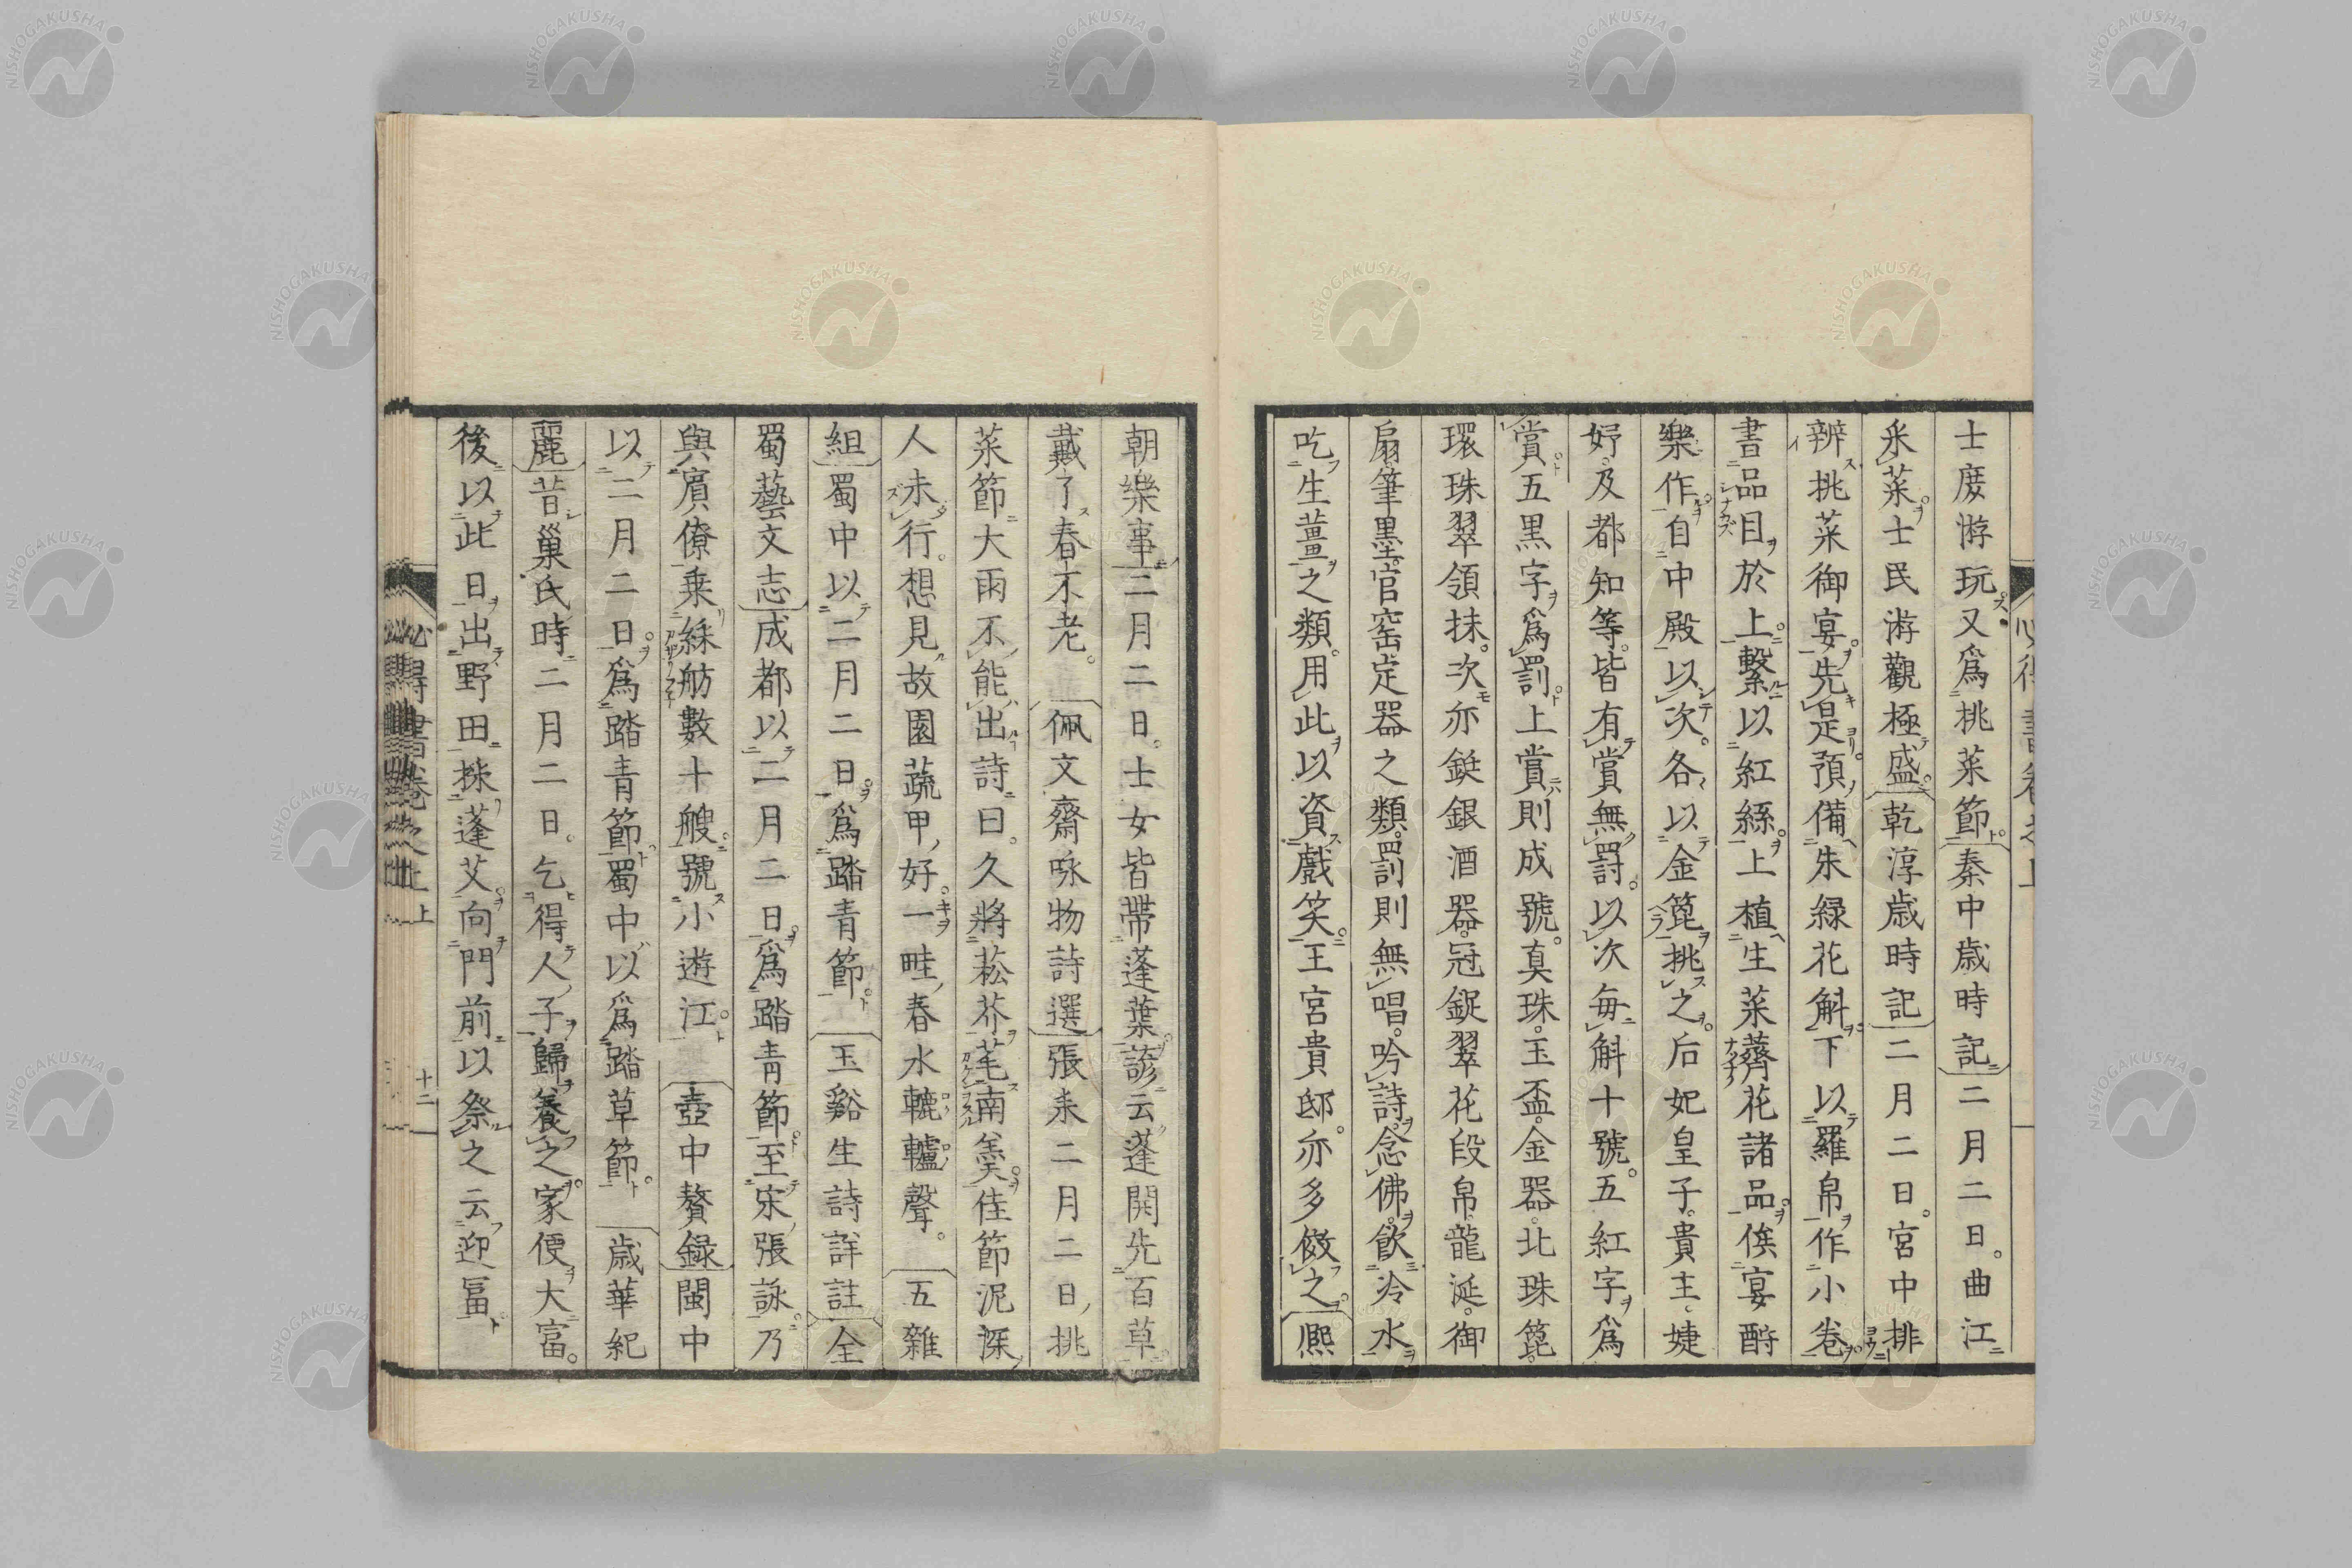 士庶游玩又爲挑菜節秦中歲時記二月二日。曲江
采菜士民游觀極盛乾淳歲時記二月二日。宮中排
辨挑菜御宴。先是預備朱緑花斛下以羅帛作小卷
書品目於上。繫以紅絲。上植生菜薺花諸品。俟宴酧
樂作。自中殿以次。各以金篦挑之。后妃皇子。貴主、婕
妤及都知等。皆有賞無罸。以次毎斛十號。五紅字爲
賞五黒字爲罰上賞則成號。真珠。玉盃。金器。北珠篦。
環珠翠領抹。次亦鋌銀酒器。冠鋜翠花段帛。龍涎。御
扇。筆墨。官窑定器之類。罰則無唱。吟詩。念佛。飲冷水。
吃生薑之類。用此以資戲笑。王宮貴邸。亦多倣之。熈
朝樂事二月二日。士女皆帶蓬葉。諺云蓬開先百草
戴了春不老。佩文齋咏物詩選張耒二月二日、挑
菜節大雨不能出詩曰。久將菘芥芼南羮。佳節泥深
人未行。想見故園蔬甲好。一畦春水轆轤聲。五雜
組蜀中以二月二日。爲踏青節玉谿生詩詳註全
蜀藝文志成都以二月二日。爲踏青節。至宋張詠。乃
與賓僚乗綵舫數十艘。號小遊江。壺中贅録閩中
以二月二日。爲踏青節蜀中以爲踏草節。歲華紀
麗昔巢氏時二月二日。乞得人子歸養之。家便大富。
後以此日出野田採蓬艾。向門前以祭之云迎冨
心得書卷之上
上
十二
NISHOGAKUSHA